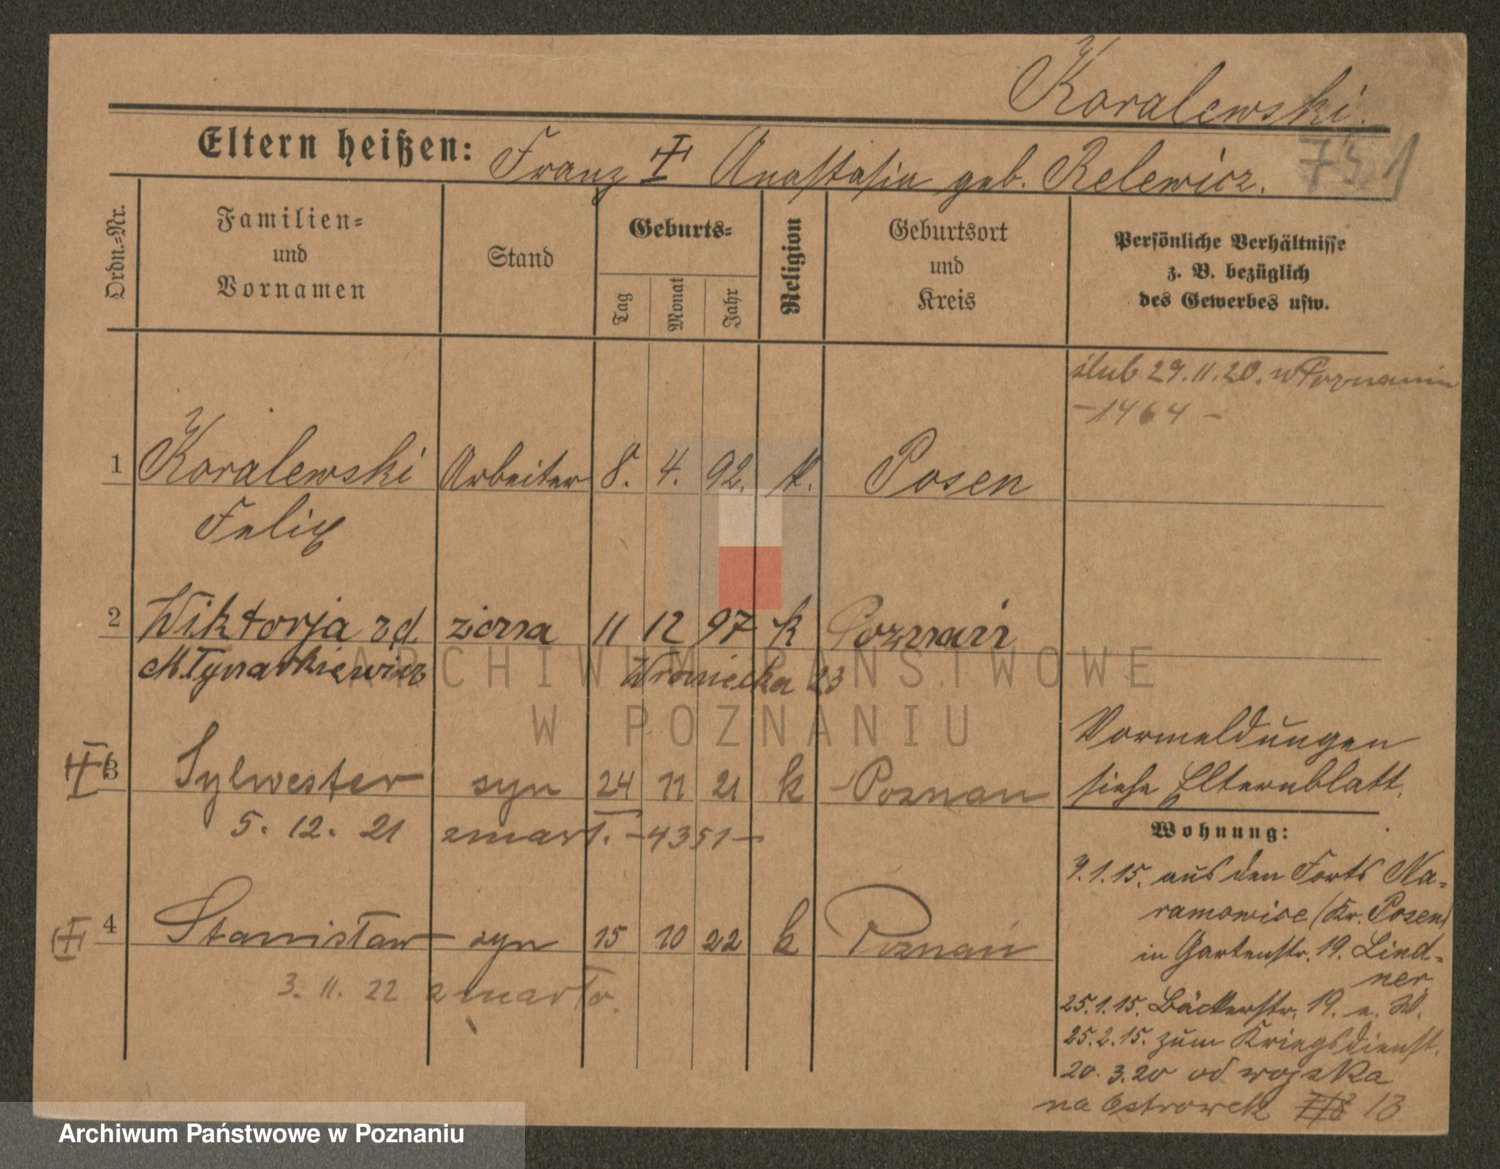 Koralewski.
751
Eltern heißen: Franz Anastasia geb. Relewicz.
Ordn.=Nr.
Familien=
und
Vornamen
Stand
Geburts=
Tag
Monat
Jahr
Religion
Geburtsort
und
Kreis
Persönliche Verhältnisse
z. B. bezüglich
des Gewerbes usw.
ślub 29.11.20. w Poznaniu
-1464-
1 Koralewski Arbeiter 8. 4. 92. k. Posen
Felix
2 Wiktorja zd. żona 11 12 97 k Poznań
Młynarkiewicz Wroniecka 23
3 Sylwester syn 24 11 21 k Poznań
5. 12. 21 zmarł. -4351-
Vormeldungen
siehe Elternblatt.
Wohnung:
4 Stanisław syn 15 10 22 k Poznań
3. 11. 22 zmarł
9.1.15. aus den Forts Na-
ramowice (Kr. Posen)
in Gartenstr. 19. Lind-
ner
25.1.15. Bäckerstr. 19. W.
25.2.15. zum Kriegsdienst.
20.3.20 od wojska
na Ostrowek 13
ARCHIWUM PAŃSTWOWE
W POZNANIU
Archiwum Państwowe w Poznaniu